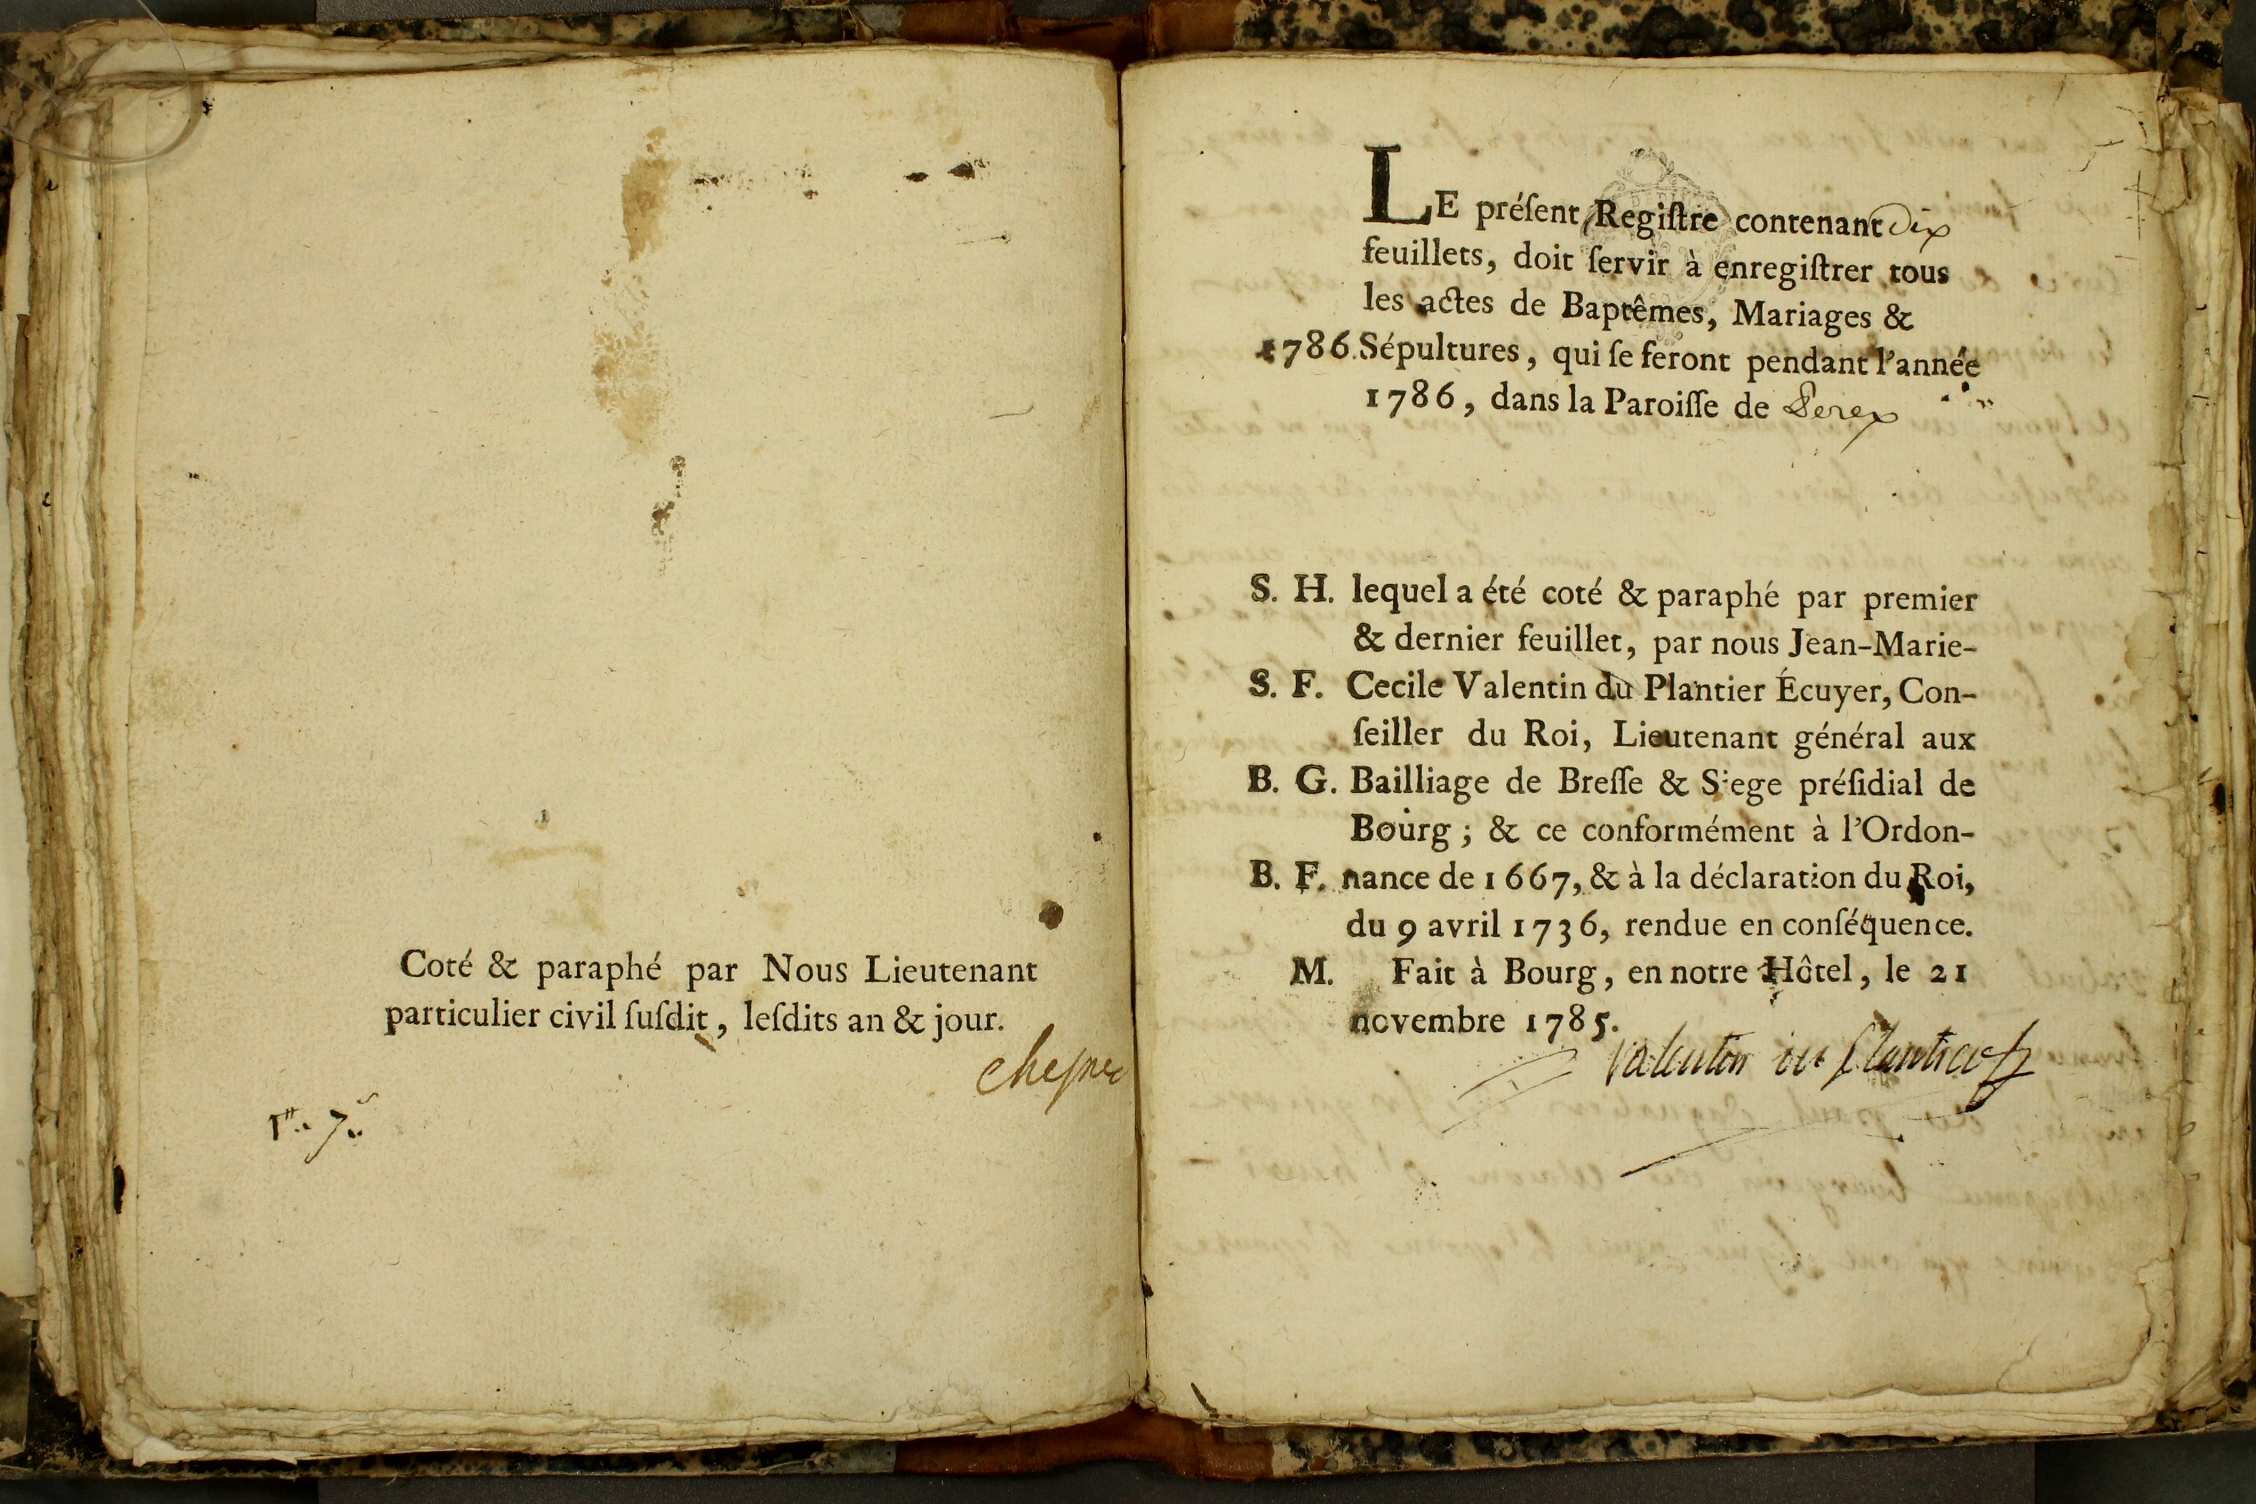 Coté & paraphé par Nous Lieutenant
particulier civil ſuſdit, leſdits an & jour.
LE préſent Regiſtre contenant Dix
feuillets, doit ſervir à enregiſtrer tous
les actes de Baptêmes, Mariages &
1786. Sépultures, qui ſe feront pendant l'année
1786, dans la Paroiſſe de Perex
S. H. lequel a été coté & paraphé par premier
& dernier feuillet, par nous Jean-Marie-
S. F. Cecile Valentin du Plantier Écuyer, Con-
ſeiller du Roi, Lieutenant général aux
B. G. Bailliage de Breſſe & Siege préſidial de
Bourg ; & ce conformément à l'Ordon-
B. F. nance de 1667, & à la déclaration du Roi,
du 9 avril 1736, rendue en conſéquence.
M. Fait à Bourg, en notre Hôtel, le 21
novembre 1785.
Valentin du Plantier